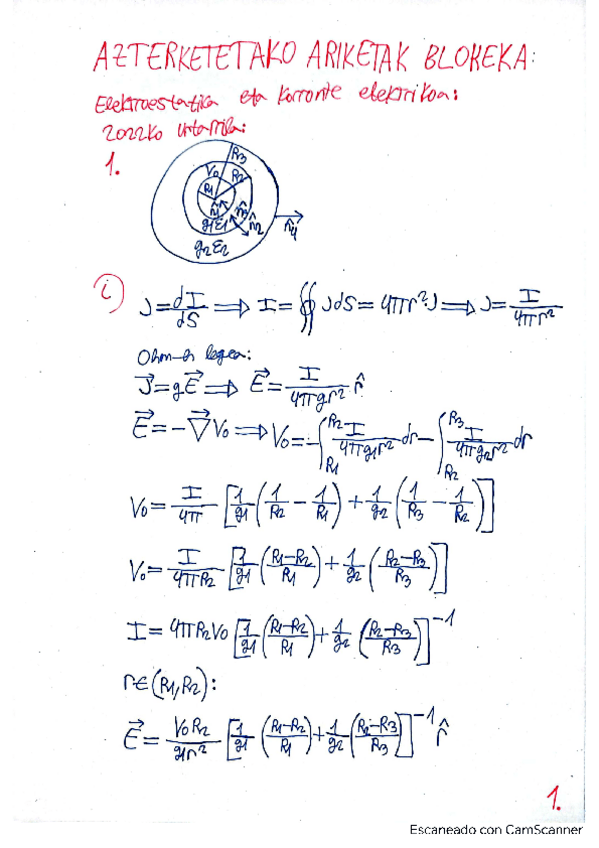 AZTERKETETAKO ARIKETAK BLOKEKA:
Elektroestatika eta korronte elektrikoa:
2022ko urtarrila:
1.
R3
V0 R2
R1
n̂1 n̂3
g1ε1 n̂2
n̂4
g2ε2
i)
J=dI/dS ⟹ I=∯JdS=4πr²J ⟹ J=I/4πr²
Ohm-en legea:
J⃗=gE⃗ ⟹ E⃗=I/4πgr² r̂
E⃗=-∇⃗V0 ⟹ V0=-∫_{R1}^{R2} I/4πg1r² dr - ∫_{R2}^{R3} I/4πg2r² dr
V0=I/4π [1/g1(1/R2 - 1/R1)+1/g2(1/R3 - 1/R2)]
V0=I/4πR2 [1/g1((R1-R2)/R1)+1/g2((R2-R3)/R3)]
I=4πR2V0[1/g1((R1-R2)/R1)+1/g2((R2-R3)/R3)]⁻¹
r∈(R1,R2):
E⃗=V0R2/g1r² [1/g1((R1-R2)/R1)+1/g2((R2-R3)/R3)]⁻¹ r̂
1.
Escaneado con CamScanner